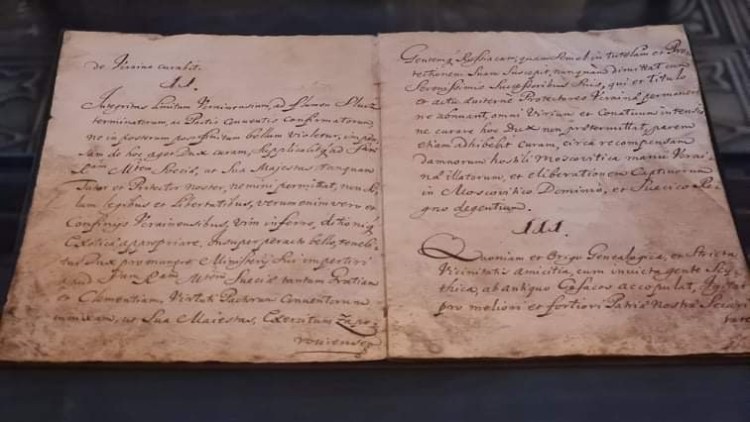 de Ucraina curabit.
II.
Integritas limitum Ucrainensium, ad flumen Sluez
terminatorum, ac Pactis Conventis confirmatorum,
ne in posterum post finitum bellum violetur, impen-
sam de hoc aget Dux curam, Supplicabitq ad
M Sueciæ, ut Sua Majestas tanquam
Tutor et Protector noster, nemini permittat, non so-
lum legibus et Libertatibus, verum enim vero et
Confinijs Ucrainensibus, vim inferre, ditioniq
Exoticæ appropriare, insuper peracto bello, tenebi-
tur Dux pro munere Ministerij Sui impertiri
apud Sueciæ tantum Gratiam
et Clementiam, Virtute Pactorum Conventorum
ut Sua Maiestas, Exercitum Zapo-
roviensem
Gentemq Rossiacam, quam semel in tutelam et Pro-
tectionem Suam Suscepit, nunquam dimittat cum
Serenissimis Successoribus Suis, qui et titulo
et actu æterne Protectores Ucrainæ permanere
ne abnuant, omni Virium et Conatuum intensio-
ne curare hoc Dux non prætermittat, parem
etiam adhibebit curam, circa recompensam
damnorum hostili Moscovitica manu Ucrai-
næ illatorum, et liberationem Captivorum
in Moscovitico Dominio, et Suecico Re-
gno degentium.
III.
Quoniam et Origo Genealogica, et Stricta
Vicinitatis amicitia, cum invicta gente Scy-
thica, ab antiquo Cosacos accopulat,
pro meliori et fortiori Patriæ Nostræ Secu